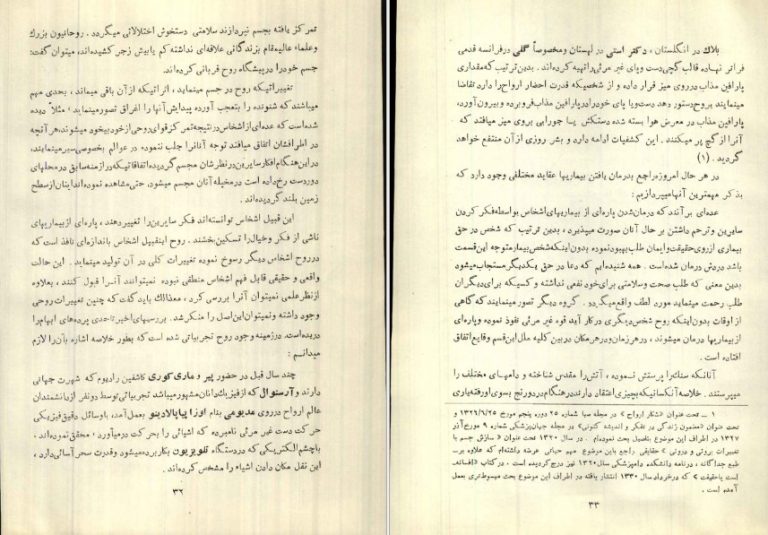 تمرکز یافته بجسم نپردازند سلامتی دستخوش اختلالاتی میگردد . روحانیون بزرگ
وعلماء عالیمقام بزندگانی علاقه‌ای نداشته کم یابیش زجر کشیده‌اند، میتوان گفت:
جسم خودرا درپیشگاه روح قربانی کرده‌اند.
تغییراتیکه روح در جسم مینماید ، اثراتیکه ازآن باقی میماند ، بحدی مهم
میباشند که شنونده را بتعجب آورده پیدایش آنها را اغراق تصورمینماید ؛ مثلاً دیده
شده‌است که عده‌ای ازاشخاص درنتیجه تمرکز قوای روحی ازخودبیخود میشوند،هرآنچه
در اطرافشان اتفاق میافتد توجه آنانرا جلب ننموده در عوالم بخصوصی‌سیرمینمایند؛
دراین‌هنگام‌افکارسایرین‌درنظرشان مجسم گردیده‌اتفاقاتیکه‌درازمنه‌سابق درمحلهای
دوردست رخ‌داده است درمخیله آنان مجسم میشود، حتی‌مشاهده نموده‌اندازسطح
زمین بلند گردیده‌اند .
این قبیل اشخاص توانسته‌اند فکر سایرین‌را تغییردهند ، پاره‌ای ازبیماریهای
ناشی از فکر وخیال‌را تسکین‌بخشند . روح اینقبیل اشخاص باندازه‌ای نافذ است که
درروح اشخاص دیگر رسوخ نموده تغییرات کلی در آن تولید مینماید . این حالت
واقعی و حقیقی قابل فهم اشخاص منطقی نبوده نمیتوانند آنرا قبول کنند ، بعلاوه
ازنظرعلمی نمیتوان آنرا بررسی کرد ، معذالک باید گفت که چنین تغییرات روحی
وجود داشته ونمیتوان‌این‌اصل را منکرشد . بررسیهای اخیر تاحدی پرده‌های ابهام‌را
دریده‌است. درزمینه وجود روح تجربیاتی شده است که بطور خلاصه اشاره بآن‌را لازم
میدانیم :
چند سال قبل در حضور پیر و ماری کوری کاشفین رادیوم که شهرت جهانی
دارند و آرسنوال که ازفیزیک‌دانان مشهورمیباشد تجربیاتی توسط دونفر ازدانشمندان
عالم ارواح درروی مدیومی بنام اوزا پیاپالادینو بعمل‌آمده باوسائل دقیق‌فیزیکی
حرکت دست غیر مرئی نامبرده که اشیائی را بحرکت درمیآورد ، محقق‌نموده‌اند ،
باچشم‌الکتریکی که دردستگاه تلویزیون بکاربرده‌میشود وقدرت سحرآسائی‌دارد ،
این نقل مکان دادن اشیاء را مشخص کرده‌اند .
۳۲
بلاک در انگلستان ، دکتر استی در لهستان ومخصوصاً گلی درفرانسه قدمی
فراتر نهاده قالب گچی‌دست وپای غیر مرئی‌راتهیه کرده‌اند . بدین‌ترتیب که‌مقداری
پارافین مذاب درروی میز قرار داده و از شخصیکه قدرت احضار ارواح‌را دارد تقاضا
مینمایند بروح‌دستور دهد دست‌ویا پای خودرا درپارافین مذاب‌فروبرده وبیرون‌آورد،
پارافین مذاب در معرض هوا بسته شده دستکش یا جورابی بروی میز میافتد که
آنرا از گچ پر میکنند . این کشفیات ادامه دارد و بشر روزی ازآن منتفع خواهد
گردید . (۱)
در هر حال امروزه‌راجع بدرمان یافتن بیماریها عقاید مختلفی وجود دارد که
بذکر مهمترین آنهامیپردازیم :
عده‌ای برآنند که درمان‌شدن پاره‌ای از بیماریهای‌اشخاص بواسطه‌فکر کردن
سایرین وترحم داشتن بر حال آنان صورت میپذیرد ، بدین ترتیب که شخص در حق
بیماری ازروی‌حقیقت‌وایمان طلب‌بهبودنموده بدون‌اینکه‌شخص‌بیمارمتوجه این‌قسمت
باشد دردش درمان شده‌است . همه شنیده‌ایم که دعا در حق یکدیگر‌مستجاب‌میشود
بدین معنی که طلب صحت وسلامتی برای‌خود نفعی نداشته و کسیکه برای‌دیگران
طلب رحمت مینماید مورد لطف واقع‌میگردد . گروه دیگر تصور مینمایند که‌گاهی
از اوقات بدون‌اینکه روح شخص‌دیگری درکار آید قوه غیر مرئی نفوذ نموده وپاره‌ای
ازبیماریها درمان میشوند ، درهرزمان‌ودرهرمکان دربین کلیه ملل‌این‌قسم وقایع‌اتفاق
افتاده است .
آنانکه سنک‌را پرستش نموده ، آتش‌را مقدس شناخته و دامهای مختلف را
میپرستند . خلاصه‌آنکسانیکه‌بچیزی‌اعتقاد دارنددرهنگام‌دردورنج بسوی‌اورفته‌یاری
۱ ــ تحت عنوان «شکار ارواح» در مجله صبا شماره ۲۵ دوره پنجم مورخ ۱۳۲۶/۶/۲۵ و
تحت عنوان «مضمون زندگی در تفکر و اندیشه کنونی» در مجله جهان‌پزشکی شماره ۹ مورخ‌آذر
۱۳۲۷ در اطراف این موضوع بتفصیل بحث نموده‌ام . در سال ۱۳۲۰ تحت عنوان « سازش جسم با
تغییرات برونی و درونی » حقایقی راجع باین موضوع مهم حیاتی عرضه داشته‌ام که علاوه بر
طبع جداگانه ، درنامه دانشکده دامپزشکی سال۱۳۲۰ نیز درج گردیده است . در کتاب «افسانه
است یاحقیقت » که درخرداد سال ۱۳۳۰ انتشار یافته در اطراف این موضوع بحث مبسوط‌تری بعمل
آمده است .
۳۳